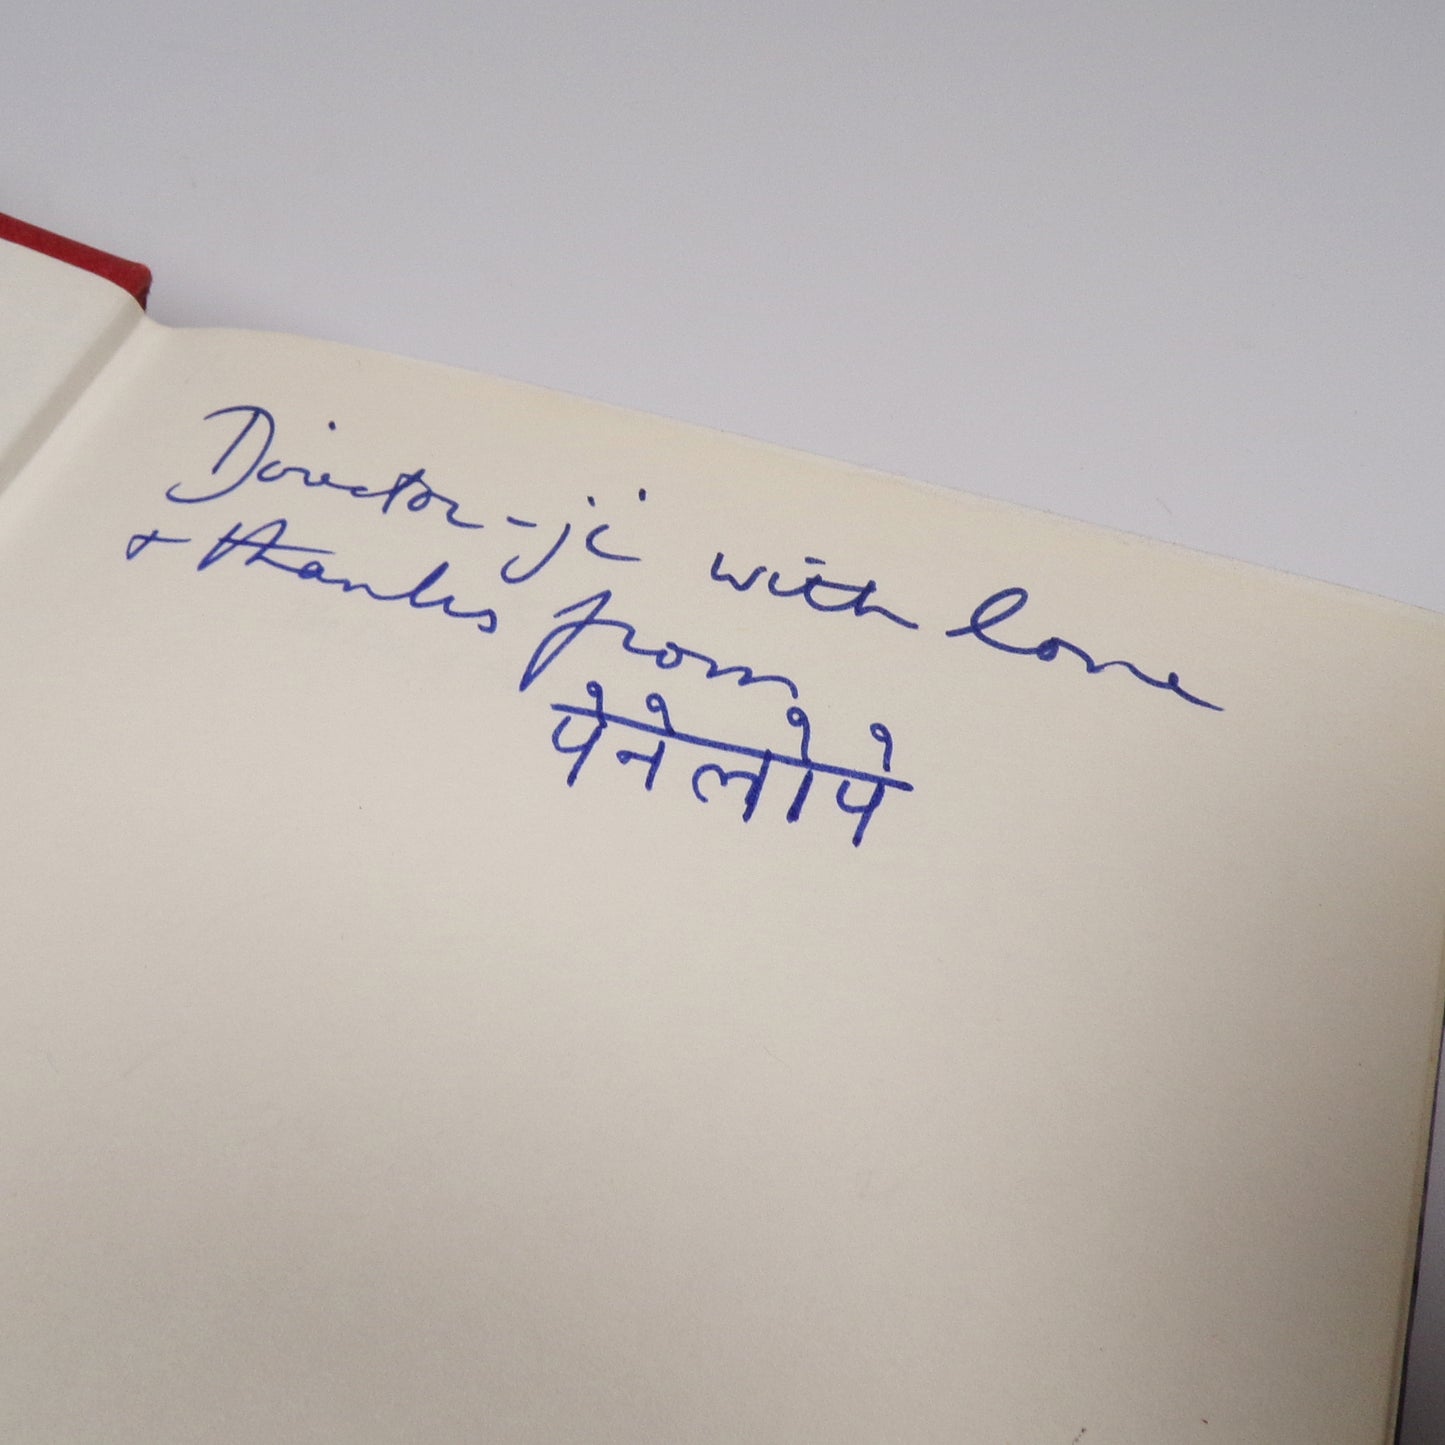 Director-ji with love
& thanks from
पेनेलोपे